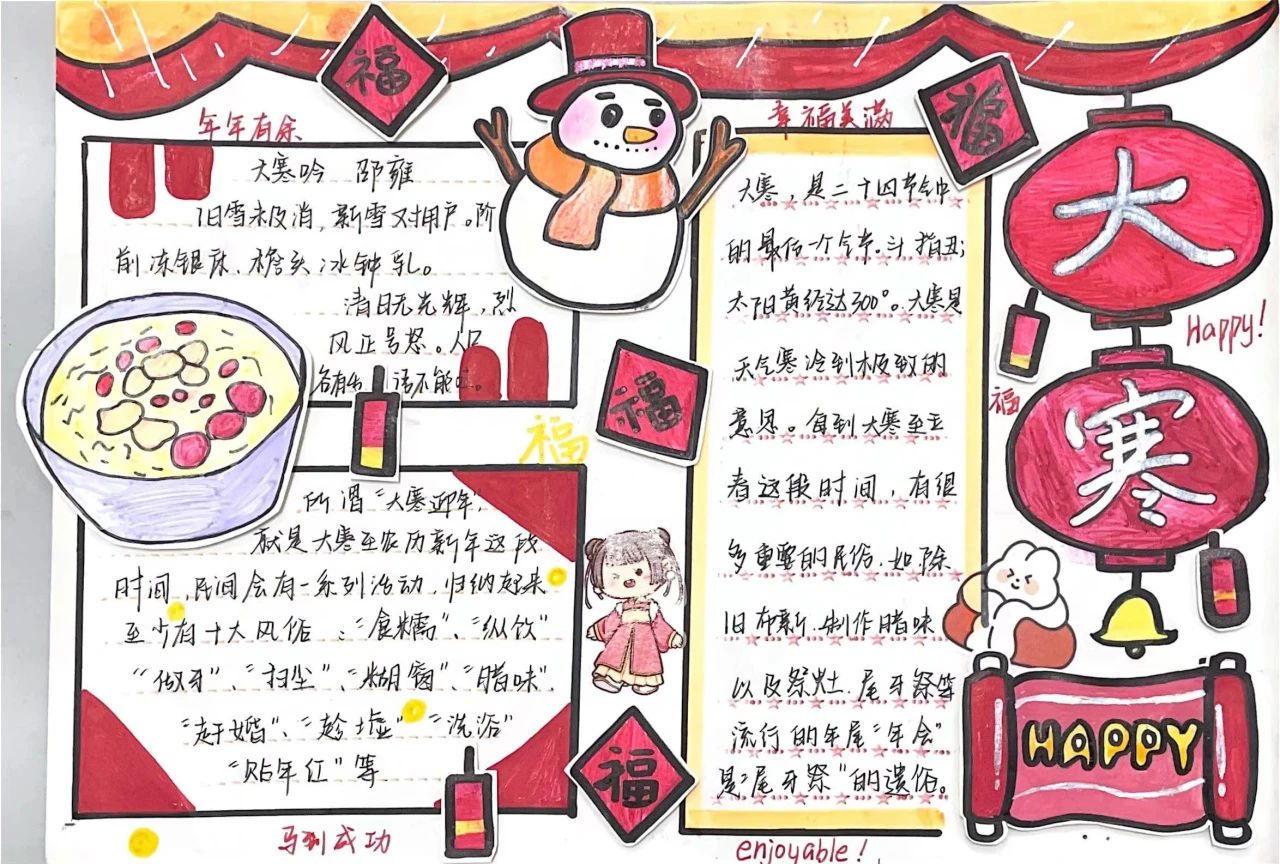 福
年年有余
大寒吟 邵雍
旧雪未及消,新雪又拥户。阶
前冻银床,檐头冰钟乳。
清日无光辉,烈
风正号怒。人口
各有舌,语不能吐。
福
所谓“大寒迎年”,
就是大寒至农历新年这段
时间,民间会有一系列活动,归纳起来
至少有十大风俗:“食糯”、“纵饮”
“做牙”、“扫尘”、“糊窗”、“腊味”、
“赶婚”、“趁墟”、“洗浴”
“贴年红”等
马到成功
福
福
幸福美满
大寒,是二十四节气中
的最后一个节气。斗指丑;
太阳黄经达300°。大寒是
天气寒冷到极致的
意思。每到大寒至立
春这段时间,有很
多重要的民俗,如除
旧布新、制作腊味
以及祭灶、尾牙祭等
流行的年尾“年会”
是“尾牙祭”的遗俗。
enjoyable!
福
大
Happy!
福
寒
HAPPY